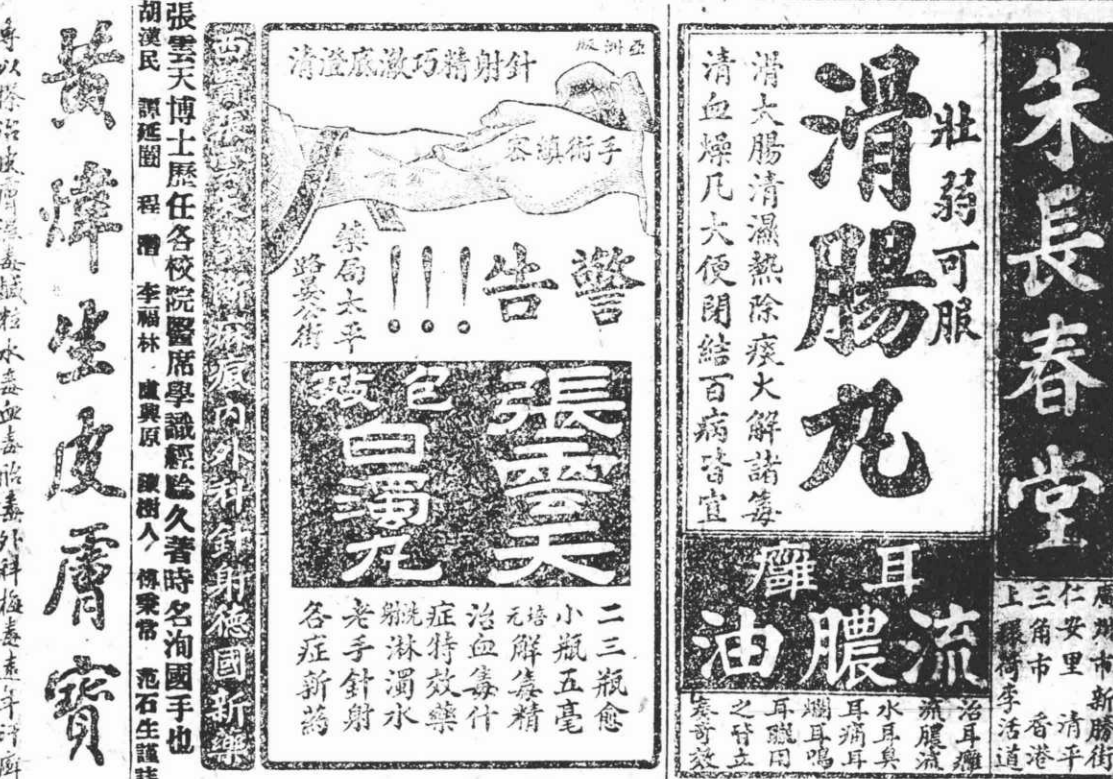 朱長春堂
廣州市新勝街
仁安里 清平
三角市 香港
上環荷李活道
壯弱可服
滑腸丸
滑大腸清濕熱除痰火解諸毒
清血燥凡大便閉結百病皆宜
耳癰
流膿油
治耳癰
流膿流
水耳臭
耳痛耳
爛耳鳴
耳聽用
之奇效
亞洲版
針射精巧澈底澄清
手術縝密
警告!!!
禁局太平
路晏公街
張雲天
包妓
白濁丸
二三瓶愈
小瓶五毫
培元解毒精
治血毒什
症特效藥
洗射淋濁水
老手針射
各症新藥
內外科針射德國新藥
張雲天博士歷任各校院醫席學識經驗久著時名洵國手也
胡漢民 譚延闓 程潛 李福林 盧興原 陳樹人 傅秉常 范石生謹誌
黃煒生皮膚寶